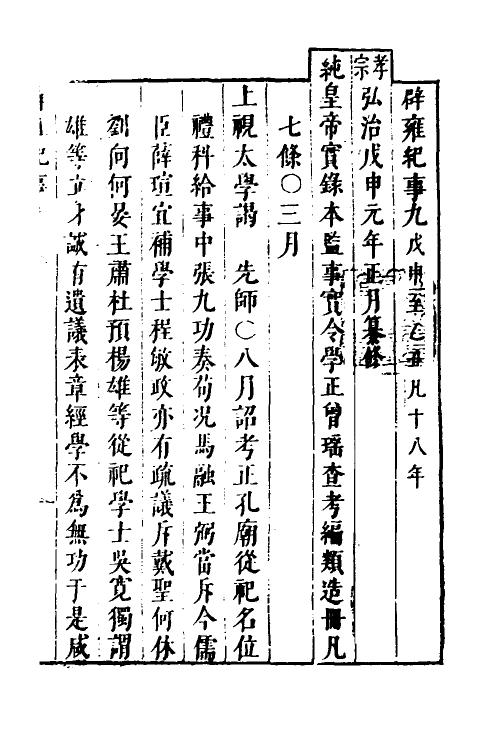 辟雍紀事九戊申至乙丑凡十八年
孝宗弘治戊申元年正月纂修
純皇帝實錄本監事實令學正曾瑤查考編類造冊凡
七條○三月
上視太學謁 先師○八月詔考正孔廟從祀名位
禮科給事中張九功奏荀況馬融王弼當斥今儒
臣薛瑄宜補學士程敏政亦有疏議斥戴聖何休
劉向何晏王肅杜預楊雄等從祀學士吳寬獨謂
雄等立才誠有遺議表章經學不爲無功于是咸